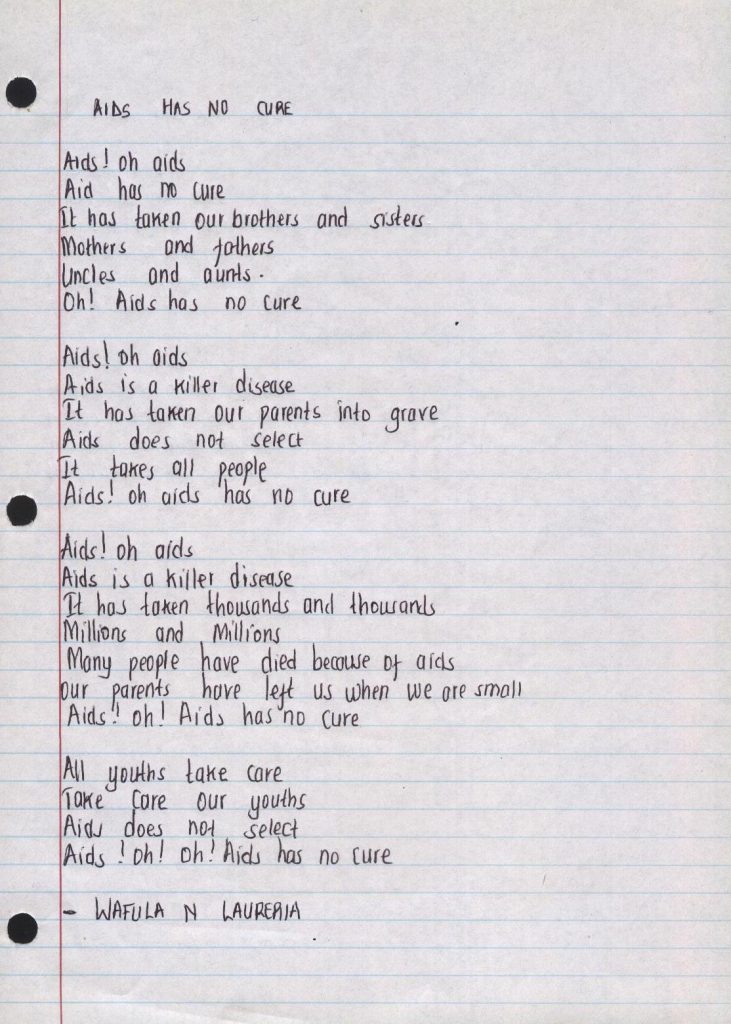 AIDS HAS NO CURE
Aids! oh aids
Aid has no cure
It has taken our brothers and sisters
Mothers and fathers
Uncles and aunts.
Oh! Aids has no cure
Aids! oh aids
Aids is a killer disease
It has taken our parents into grave
Aids does not select
It takes all people
Aids! oh aids has no cure
Aids! oh aids
Aids is a killer disease
It has taken thousands and thousands
Millions and Millions
Many people have died because of aids
our parents have left us when we are small
Aids! oh! Aids has no cure
All youths take care
Take care our youths
Aids does not select
Aids! oh! oh! Aids has no cure
- WAFULA N LAURERIA